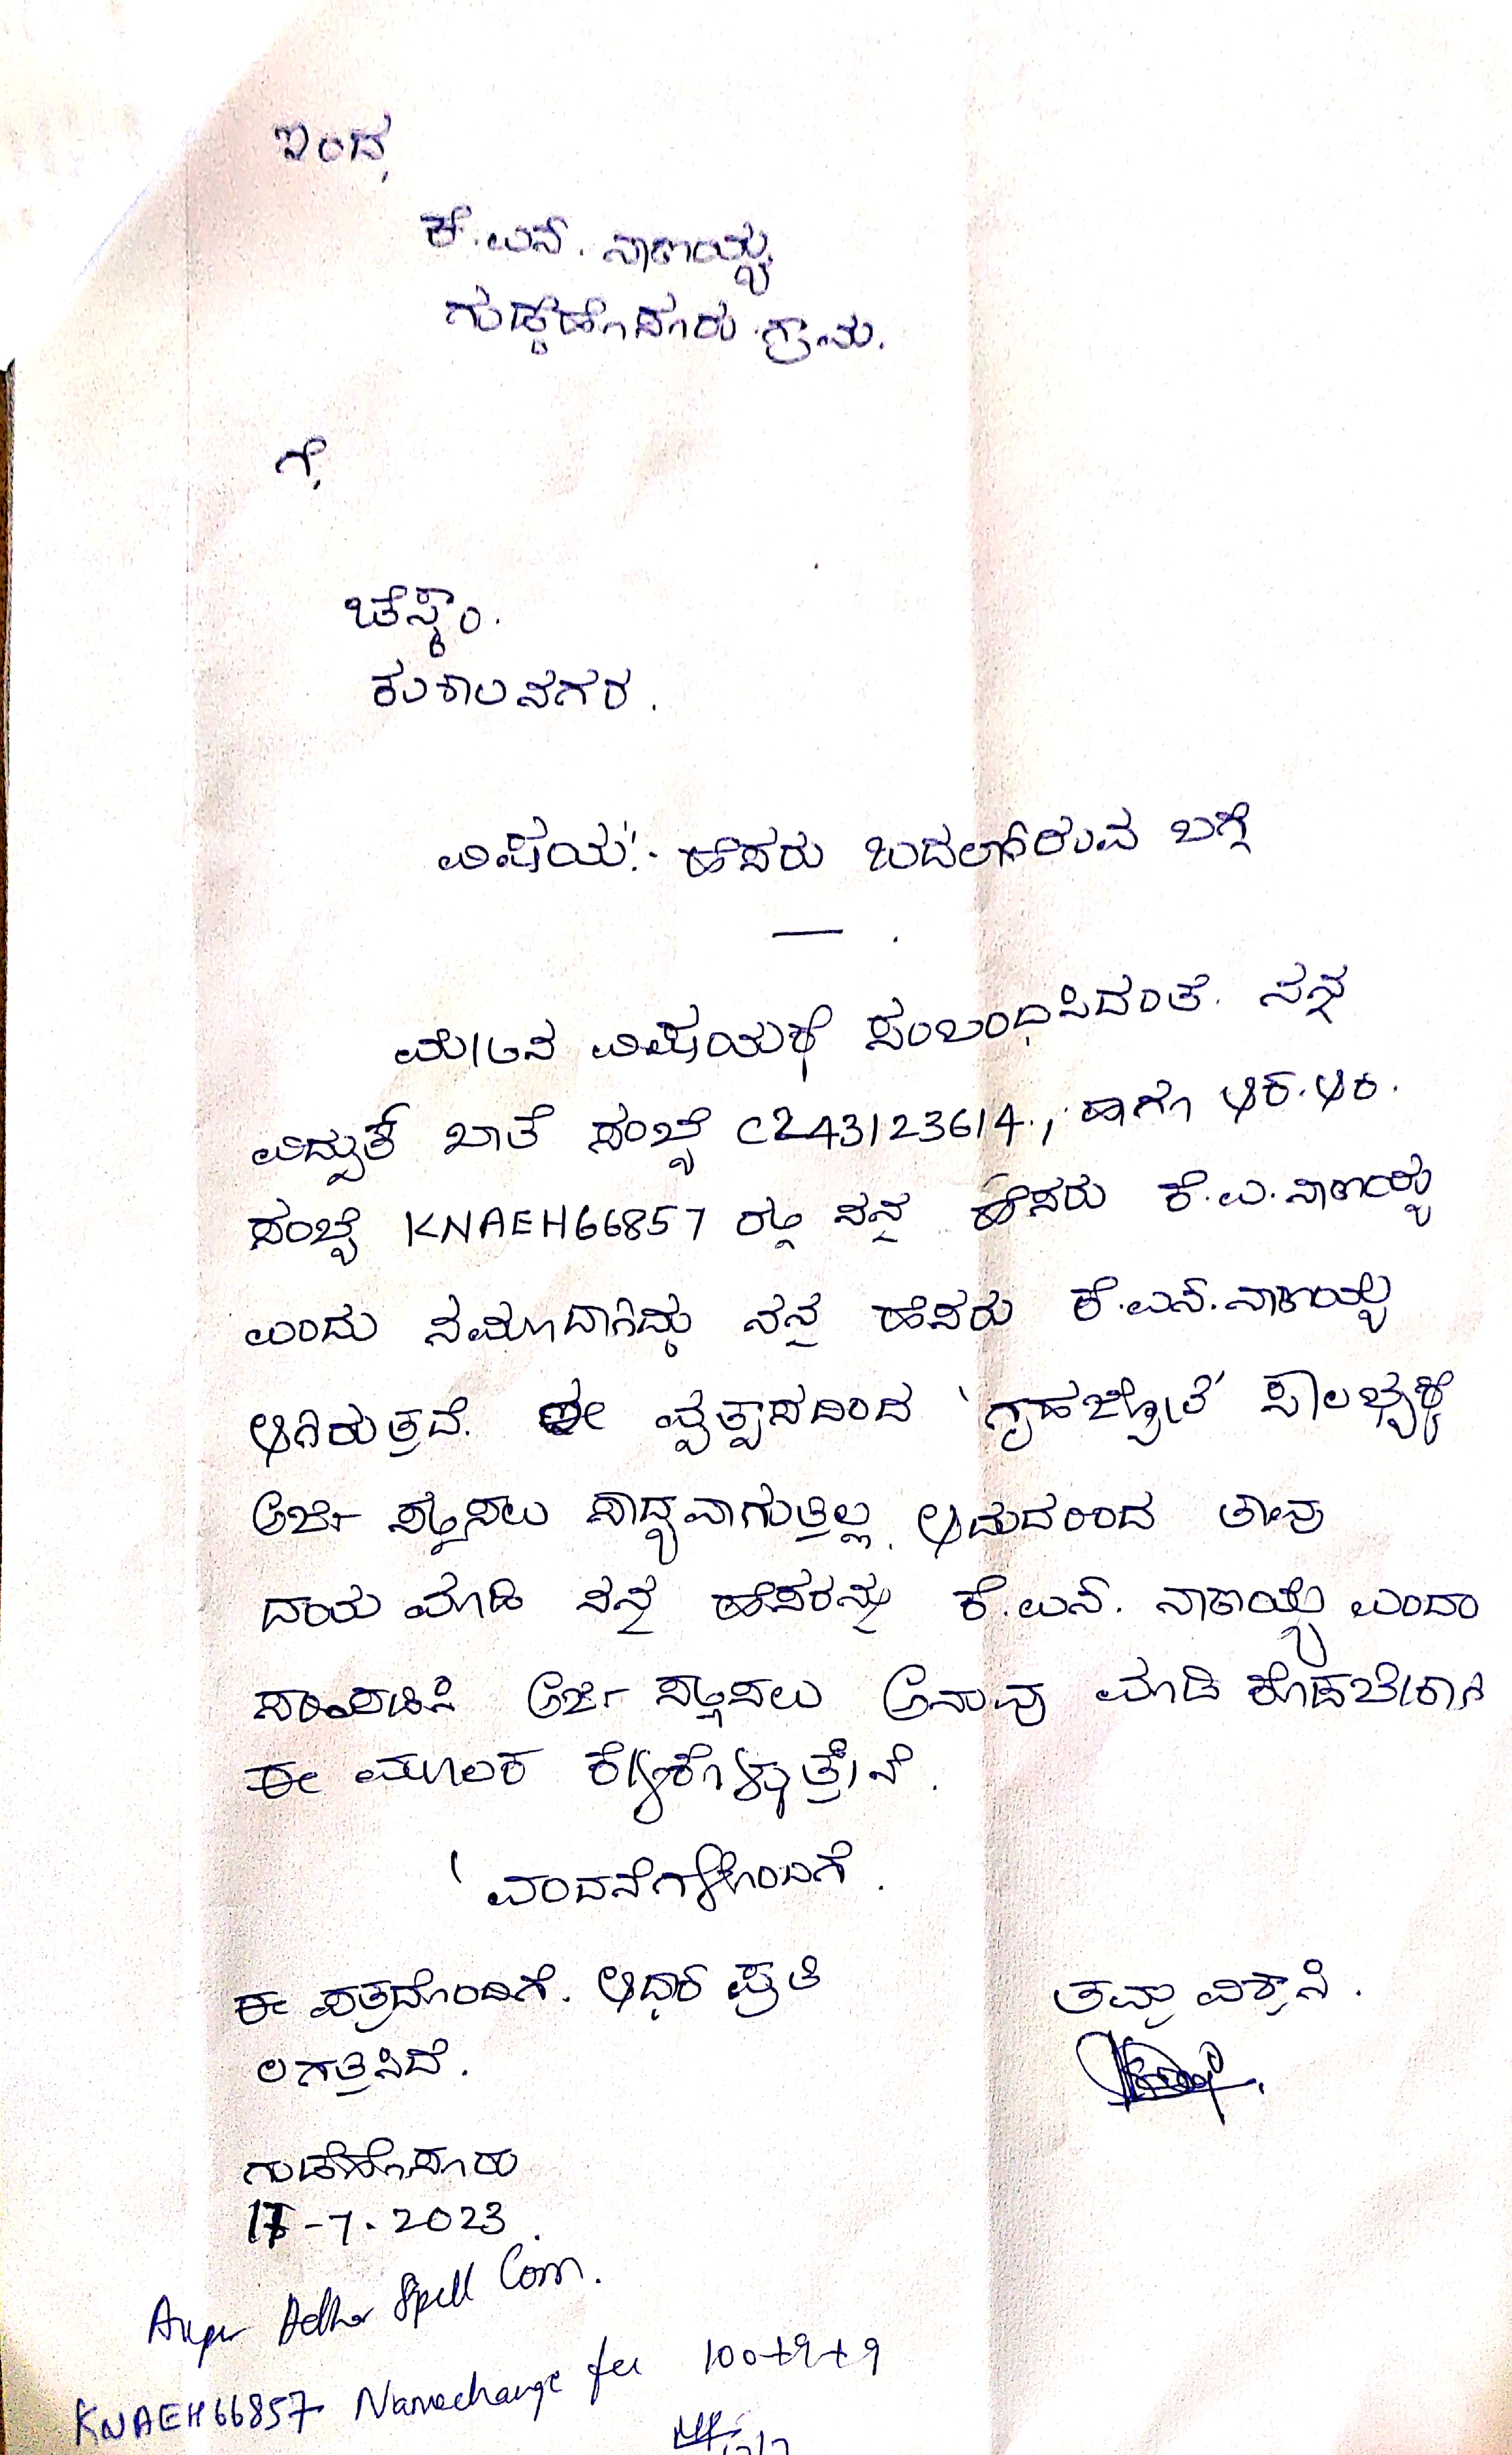 ಇಂದ,
ಕೆ.ಎನ್. ನಾಣಯ್ಯ
ಗುಡ್ಡೆಹೊಸೂರು ಗ್ರಾಮ.
ಗೆ,
ಚೆಸ್ಕಾಂ.
ಕುಶಾಲನಗರ.
ವಿಷಯ:- ಹೆಸರು ಬದಲಾಗಿರುವ ಬಗ್ಗೆ
ಮೇಲಿನ ವಿಷಯಕ್ಕೆ ಸಂಬಂಧಿಸಿದಂತೆ. ನನ್ನ
ವಿದ್ಯುತ್ ಖಾತೆ ಸಂಖ್ಯೆ C243123614., ಹಾಗೂ ಆರ್.ಆರ್.
ಸಂಖ್ಯೆ KNAEH66857 ರಲ್ಲಿ ನನ್ನ ಹೆಸರು ಕೆ.ಎ.ನಾಣಯ್ಯ
ಎಂದು ನಮೂದಾಗಿದ್ದು ನನ್ನ ಹೆಸರು ಕೆ.ಎನ್.ನಾಣಯ್ಯ
ಆಗಿರುತ್ತವೆ. ಈ ವ್ಯತ್ಯಾಸದಿಂದ 'ಗೃಹಜ್ಯೋತಿ' ಸೌಲಭ್ಯಕ್ಕೆ
ಅರ್ಜಿ ಸಲ್ಲಿಸಲು ಸಾಧ್ಯವಾಗುತ್ತಿಲ್ಲ. ಆದುದರಿಂದ ತಾವು
ದಯ ಮಾಡಿ ನನ್ನ ಹೆಸರನ್ನು ಕೆ.ಎನ್. ನಾಣಯ್ಯ ಎಂದು
ಸರಿಪಡಿಸಿ ಅರ್ಜಿ ಸಲ್ಲಿಸಲು ಅನುವು ಮಾಡಿ ಕೊಡಬೇಕಾಗಿ
ಈ ಮೂಲಕ ಕೇಳಿಕೊಳ್ಳುತ್ತೇನೆ.
ವಂದನೆಗಳೊಂದಿಗೆ.
ಈ ಪತ್ರದೊಂದಿಗೆ. ಆಧಾರ್ ಪ್ರತಿ
ಲಗತ್ತಿಸಿದೆ.
ತಮ್ಮ ವಿಶ್ವಾಸಿ.
ಗುಡ್ಡೆಹೊಸೂರು
17-7-2023.
Spell Corn.
KNAEH66857 Namechange fee 100+9+9